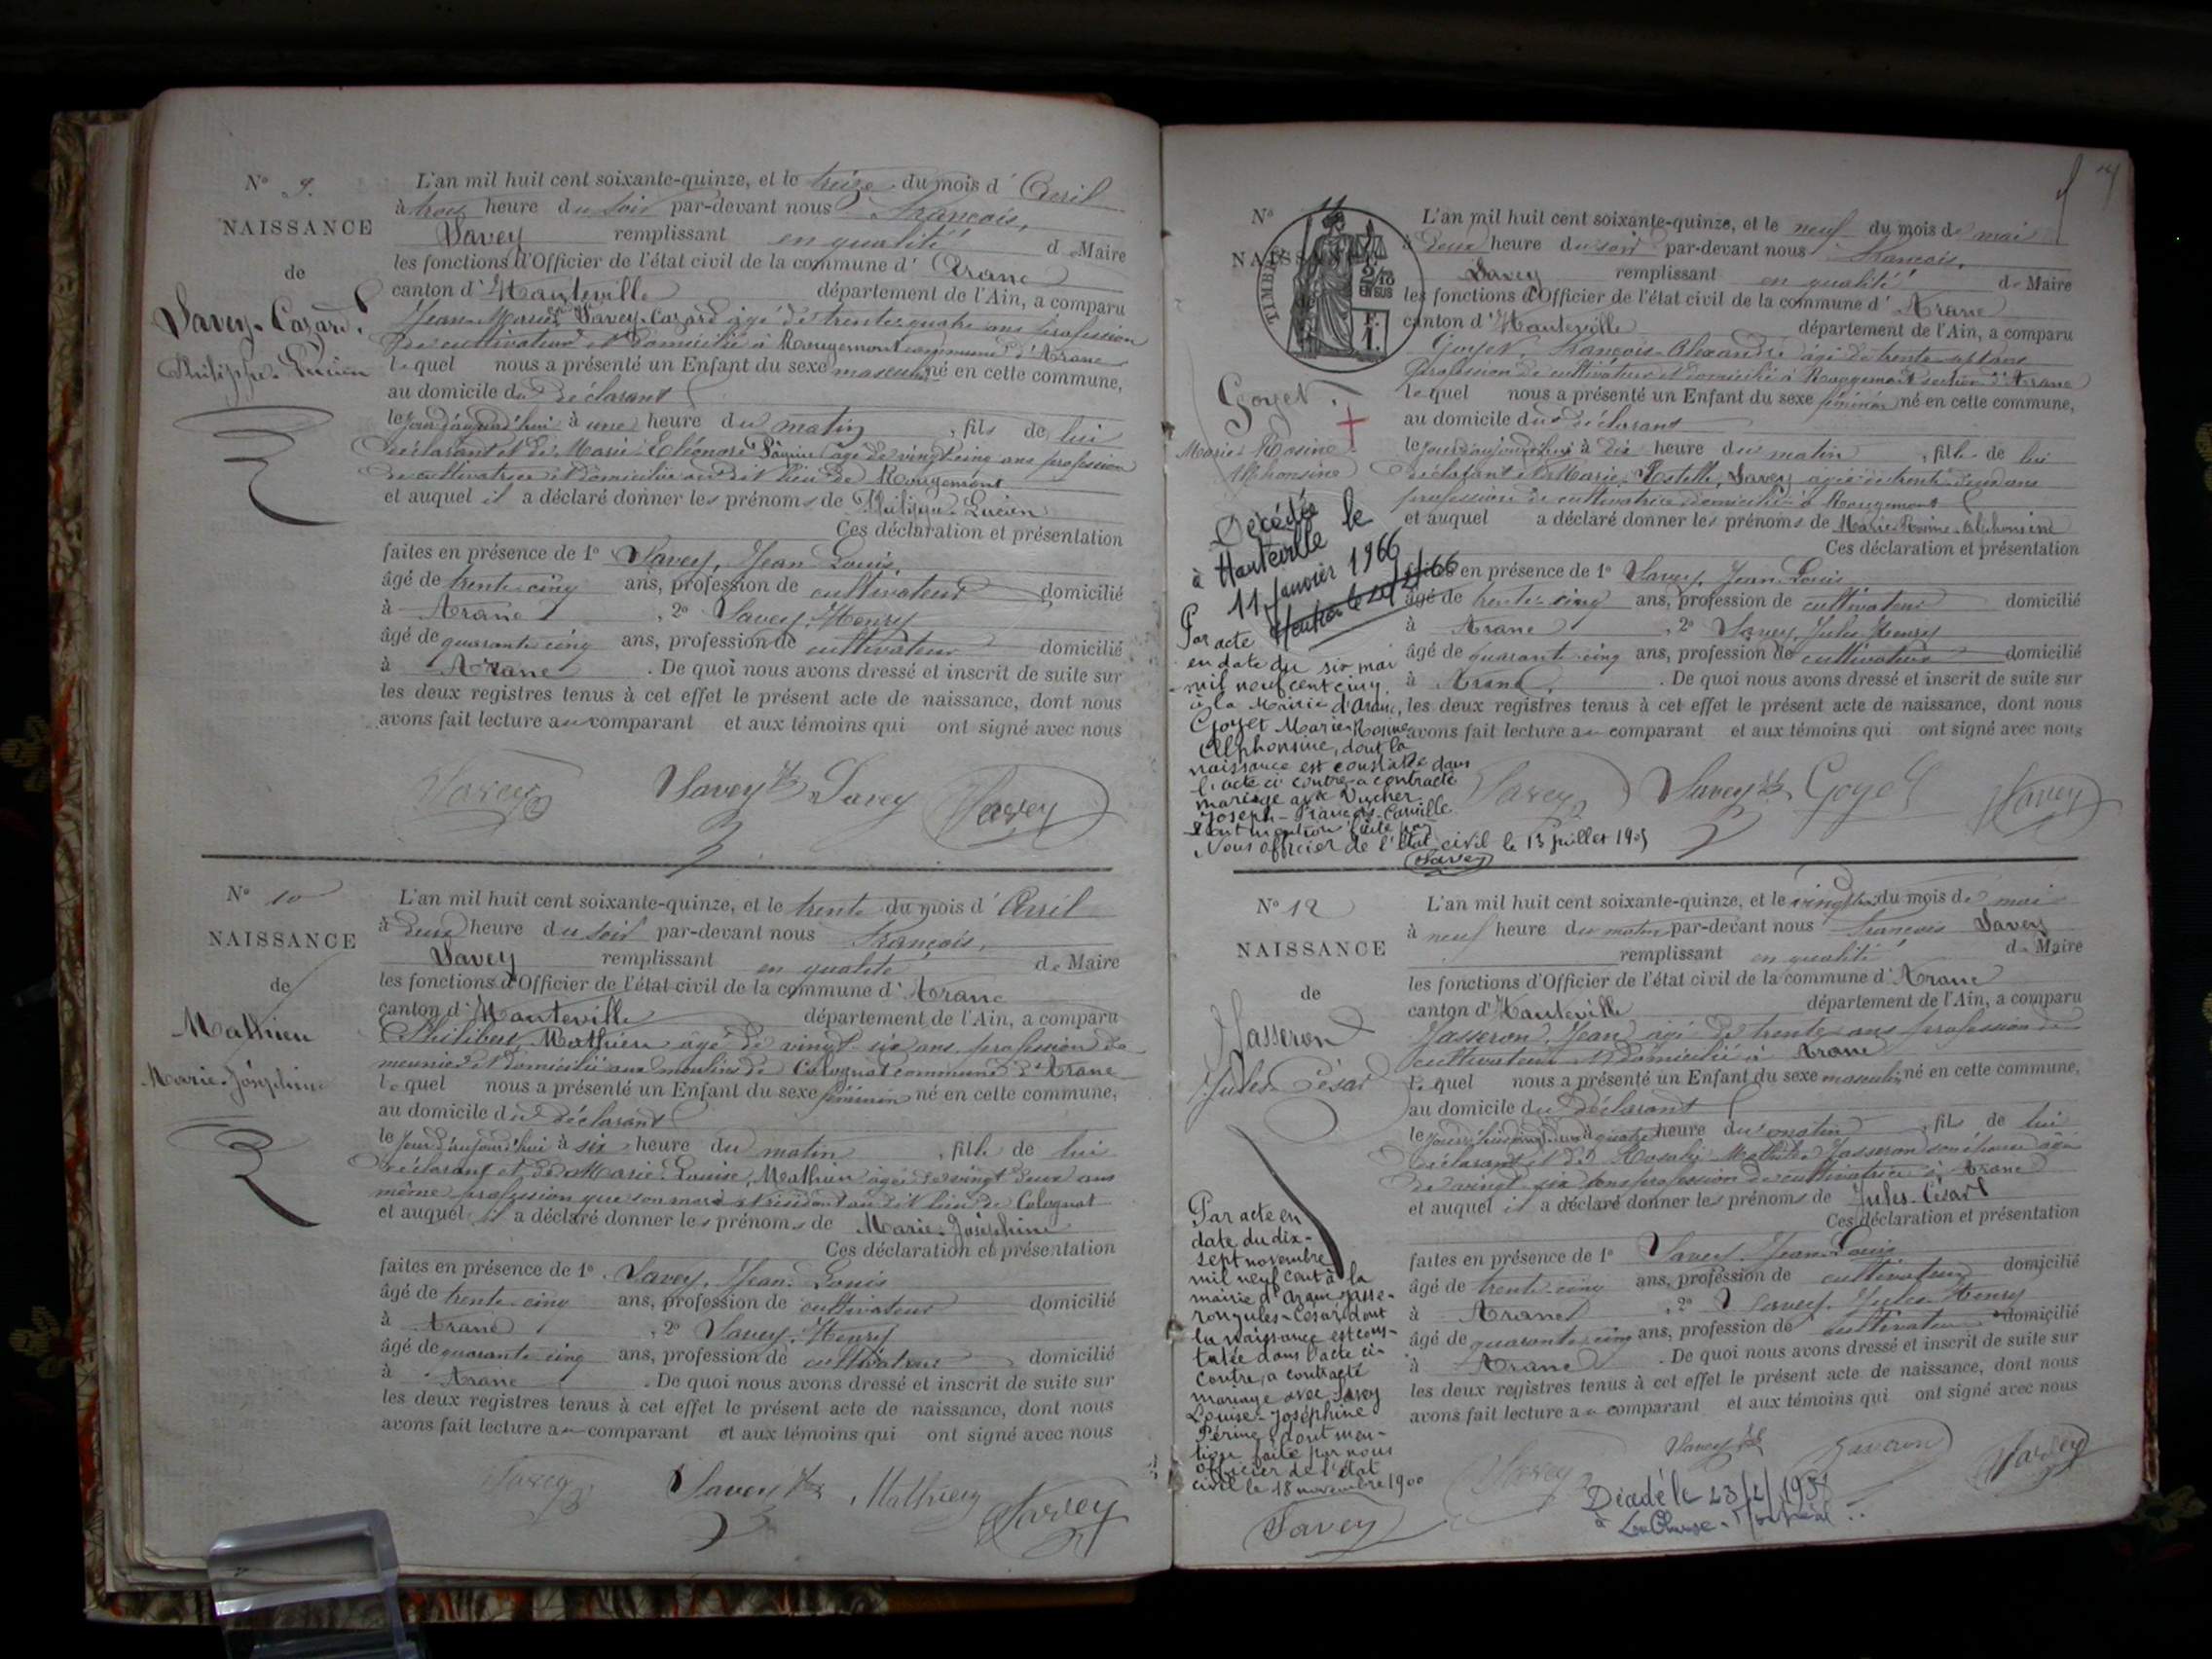 N° 9.
NAISSANCE
de
Savey-Cazard.
Philippe-Lucien
L'an mil huit cent soixante-quinze, et le treize du mois d'Avril
à trois heure du soir par-devant nous François,
Savey remplissant en qualité de Maire
les fonctions d'Officier de l'état civil de la commune d'Aranc
canton d'Hauteville département de l'Ain, a comparu
Jean-Marie Savey-Cazard âgé de trente quatre ans profession
de cultivateur et domicilié à Rougemont commune d'Aranc
lequel nous a présenté un Enfant du sexe masculin né en cette commune,
au domicile du déclarant
le jour d'aujourd'hui à une heure du matin, fils de lui
déclarant et de Marie Eléonore âgé de vingt cinq ans profession
de cultivatrice et domiciliée au dit lieu de Rougemont
et auquel il a déclaré donner les prénoms de Philippe-Lucien
Ces déclaration et présentation
faites en présence de 1° Savey, Jean Louis,
âgé de trente cinq ans, profession de cultivateur domicilié
à Aranc, 2° Savey, Henry
âgé de quarante cinq ans, profession de cultivateur domicilié
à Aranc. De quoi nous avons dressé et inscrit de suite sur
les deux registres tenus à cet effet le présent acte de naissance, dont nous
avons fait lecture au comparant et aux témoins qui ont signé avec nous
Savey Savey Savey Savey
N° 10
NAISSANCE
de
Mathieu
Marie-Joséphine
L'an mil huit cent soixante-quinze, et le trente du mois d'Avril
à deux heure du soir par-devant nous François,
Savey remplissant en qualité de Maire
les fonctions d'Officier de l'état civil de la commune d'Aranc
canton d'Hauteville département de l'Ain, a comparu
Philibert Mathieu âgé de vingt six ans profession de
meunier et domicilié aux moulins de Colognat commune d'Aranc
lequel nous a présenté un Enfant du sexe féminin né en cette commune,
au domicile du déclarant
le jour d'aujourd'hui à six heure du matin, fille de lui
déclarant et de Marie Louise, Mathieu âgée de vingt deux ans
même profession que son mari et résidant au dit lieu de Colognat
et auquel il a déclaré donner les prénoms de Marie-Joséphine
Ces déclaration et présentation
faites en présence de 1° Savey, Jean Louis
âgé de trente cinq ans, profession de cultivateur domicilié
à Aranc, 2° Savey, Henry
âgé de quarante cinq ans, profession de cultivateur domicilié
à Aranc. De quoi nous avons dressé et inscrit de suite sur
les deux registres tenus à cet effet le présent acte de naissance, dont nous
avons fait lecture au comparant et aux témoins qui ont signé avec nous
Savey Savey Mathieu Savey
N° 11
NAISSANCE
TIMBRE
2/10
EN SUS
1 F.
Goyet.
Marie-Rosine
Alphonsine
L'an mil huit cent soixante-quinze, et le neuf du mois de mai
à deux heure du soir par-devant nous François,
Savey remplissant en qualité de Maire
les fonctions d'Officier de l'état civil de la commune d'Aranc
canton d'Hauteville département de l'Ain, a comparu
Goyet, François-Alexandre âgé de trente sept ans
profession de cultivateur et domicilié à Rougemont section d'Aranc
lequel nous a présenté un Enfant du sexe féminin né en cette commune,
au domicile du déclarant
le jour d'aujourd'hui à dix heure du matin, fille de lui
déclarant et Marie, Estelle, Savey âgée de trente deux ans
profession de cultivatrice domiciliée à Rougemont
et auquel a déclaré donner les prénoms de Marie-Rosine-Alphonsine
Ces déclaration et présentation
faites en présence de 1° Savey, Jean Louis
âgé de trente cinq ans, profession de cultivateur domicilié
à Aranc, 2° Savey, Jules Henry
âgé de quarante cinq ans, profession de cultivateur domicilié
à Aranc. De quoi nous avons dressé et inscrit de suite sur
les deux registres tenus à cet effet le présent acte de naissance, dont nous
avons fait lecture au comparant et aux témoins qui ont signé avec nous
Savey Savey Goyet Savey
Décédée
à Hauteville le
11 Janvier 1966
Par acte
en date du six mai
mil neuf cent cinq,
à la Mairie d'Aranc,
Goyet Marie-Rosine
Alphonsine, dont la
naissance est constatée dans
l'acte ci contre a contracté
mariage avec
Joseph-François-Camille
dont mention faite par
Nous officier de l'état civil le 13 juillet 1905
Savey
N° 12
NAISSANCE
de
Jasseron
Jules César
L'an mil huit cent soixante-quinze, et le du mois de mai
à neuf heure du matin par-devant nous François Savey
remplissant en qualité de Maire
les fonctions d'Officier de l'état civil de la commune d'Aranc
canton d'Hauteville département de l'Ain, a comparu
Jasseron, Jean âgé de trente ans profession de
cultivateur et domicilié à Aranc
lequel nous a présenté un Enfant du sexe masculin né en cette commune,
au domicile du déclarant
le à quatre heure du matin, fils de lui
déclarant et de Rosalie Mathilde Jasseron son épouse âgée
de vingt six ans profession de cultivatrice à Aranc
et auquel il a déclaré donner les prénoms de Jules-César
Ces déclaration et présentation
faites en présence de 1° Savey Jean-Louis
âgé de trente cinq ans, profession de cultivateur domicilié
à Aranc, 2° Savey, Jules Henry
âgé de quarante cinq ans, profession de cultivateur domicilié
à Aranc. De quoi nous avons dressé et inscrit de suite sur
les deux registres tenus à cet effet le présent acte de naissance, dont nous
avons fait lecture au comparant et aux témoins qui ont signé avec nous
Savey Savey Jasseron Savey
Par acte en
date du dix-
sept novembre
mil neuf cent à la
mairie d'Aranc Jasse-
ron Jules-César dont
la naissance est cons-
tatée dans l'acte ci-
contre, a contracté
mariage avec Savey
Louise-Joséphine
Périne dont men-
tion faite par nous
officier de l'état
civil le 18 novembre 1900
Savey
Décédé le 23/2/
à